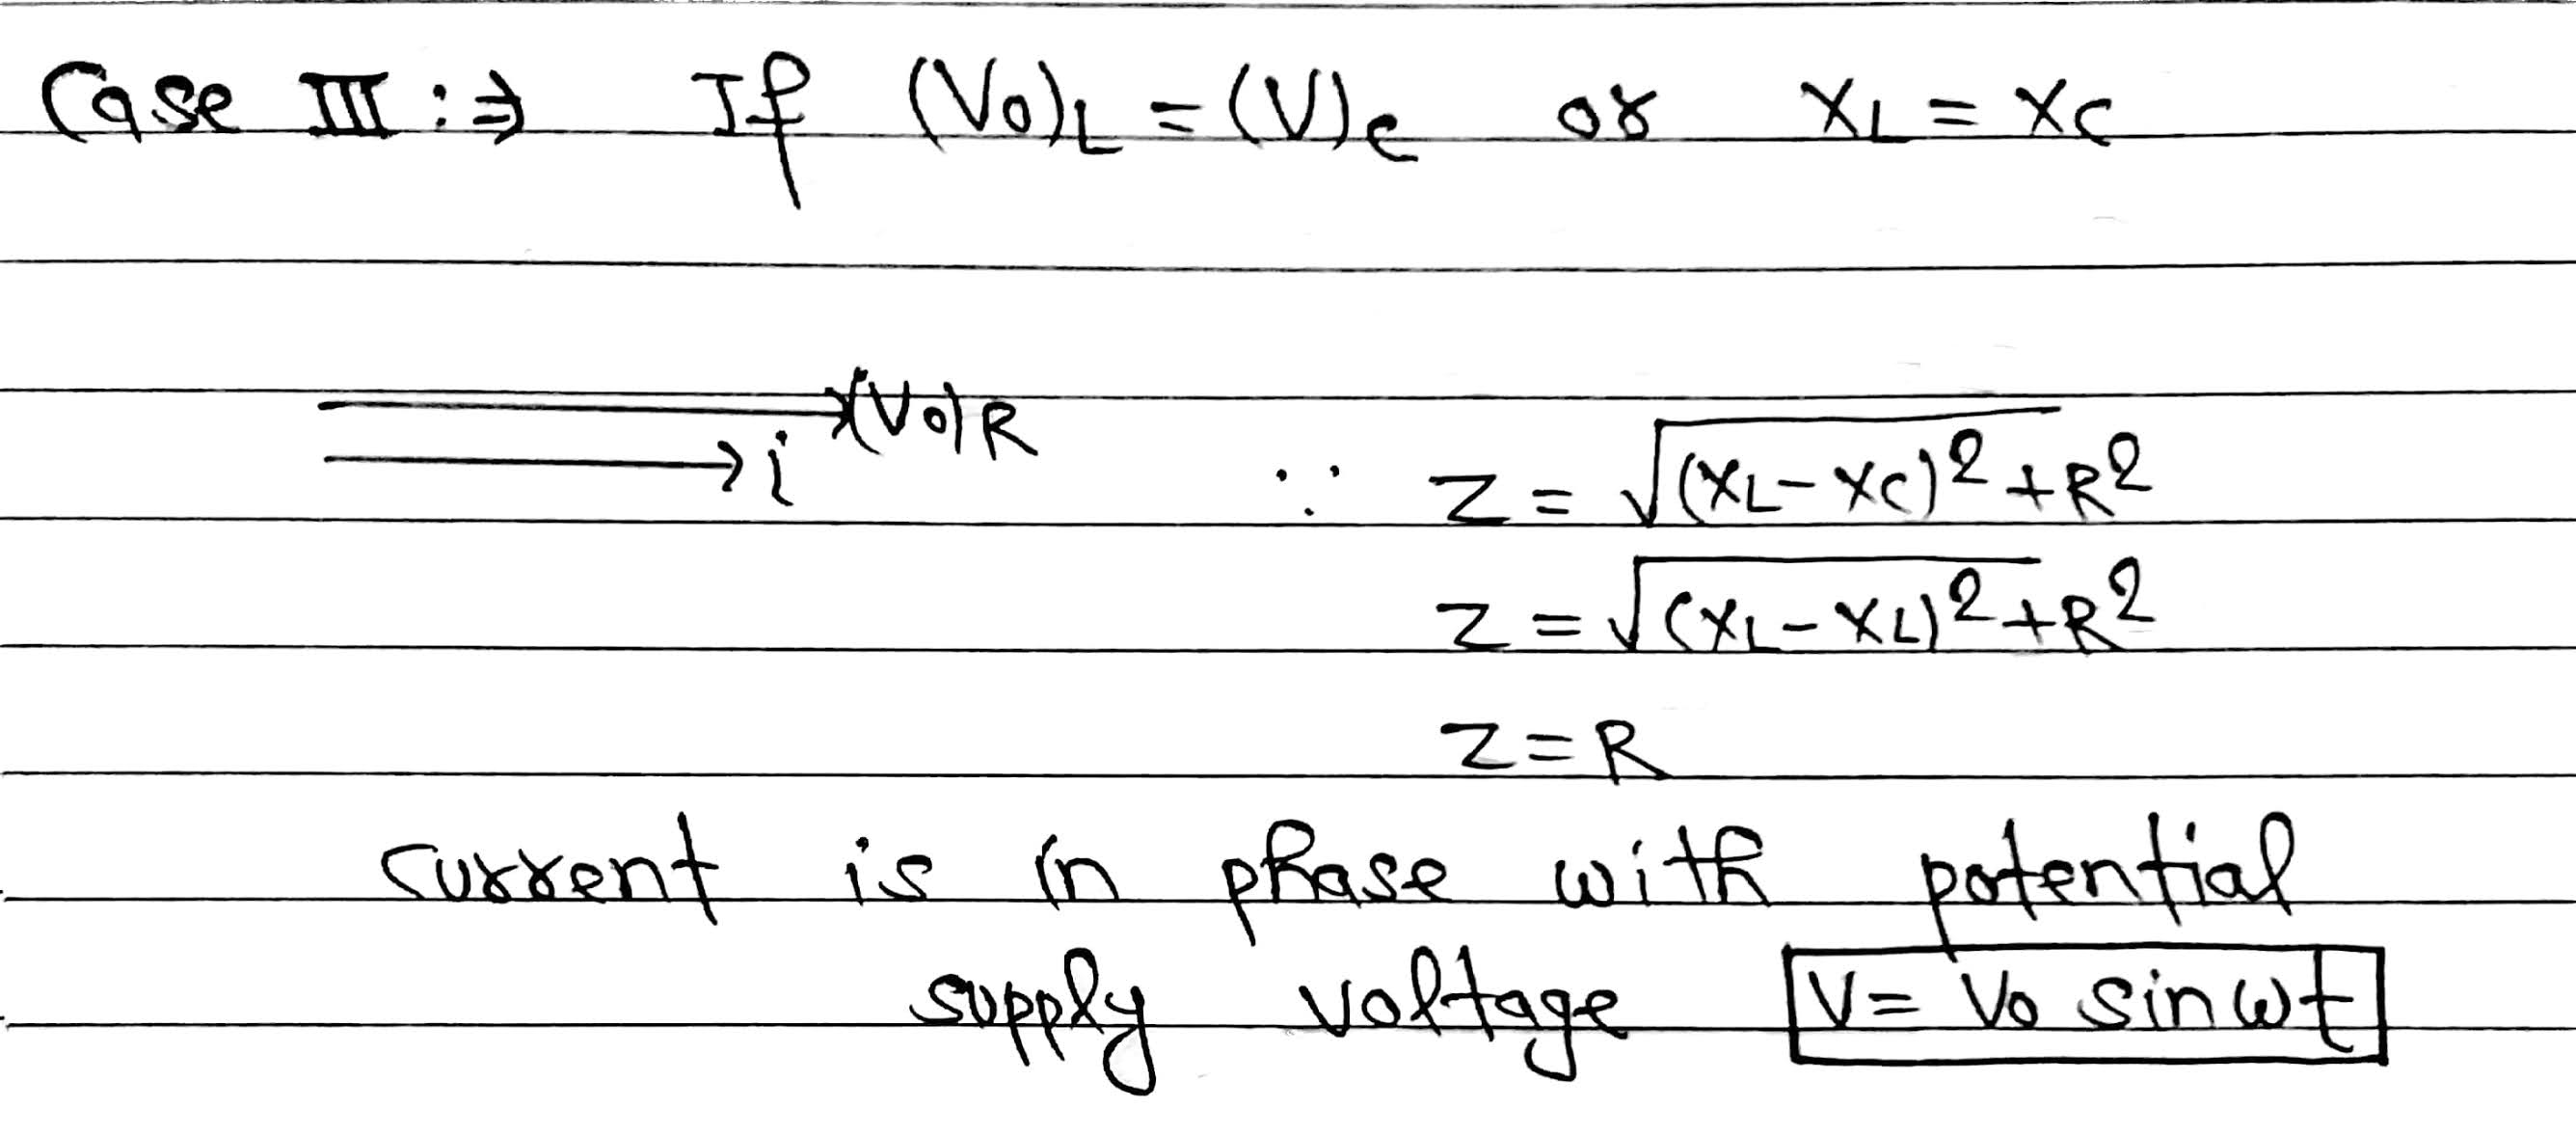 Case III :⇒ If (V0)L = (V)c or XL = XC
(V0)R
i
∵ Z = √(XL - XC)² + R²
Z = √(XL - XL)² + R²
Z = R
current is in phase with potential
supply voltage V = V0 sin ωt